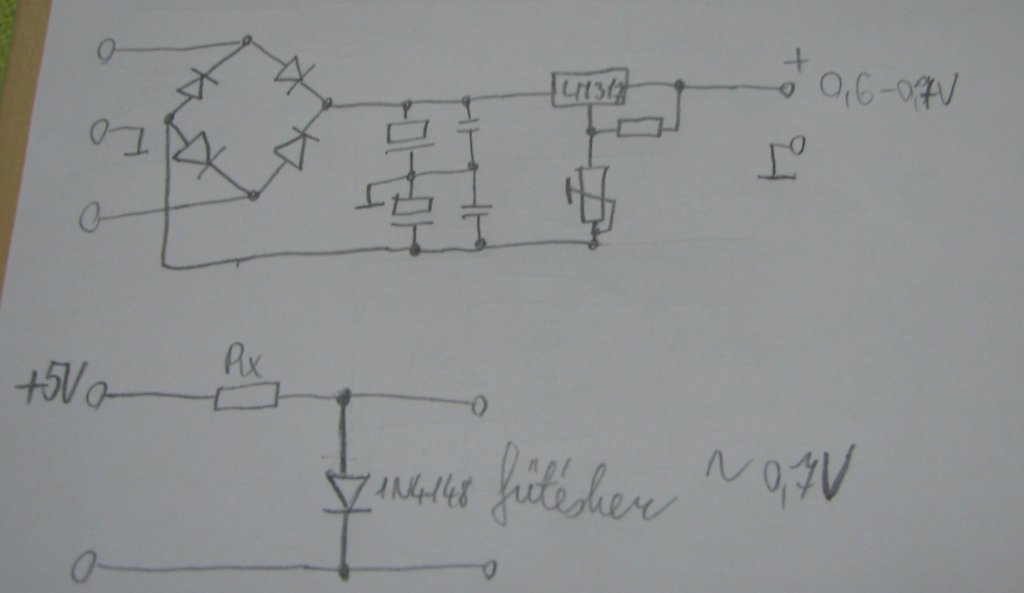 +
LM317
0,6-0,7V
Rx
+5V
1N4148 fűtéshez ~0,7V